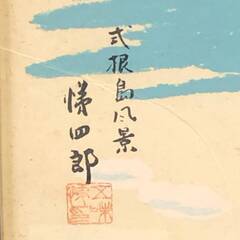 式根島風景
悌四郎